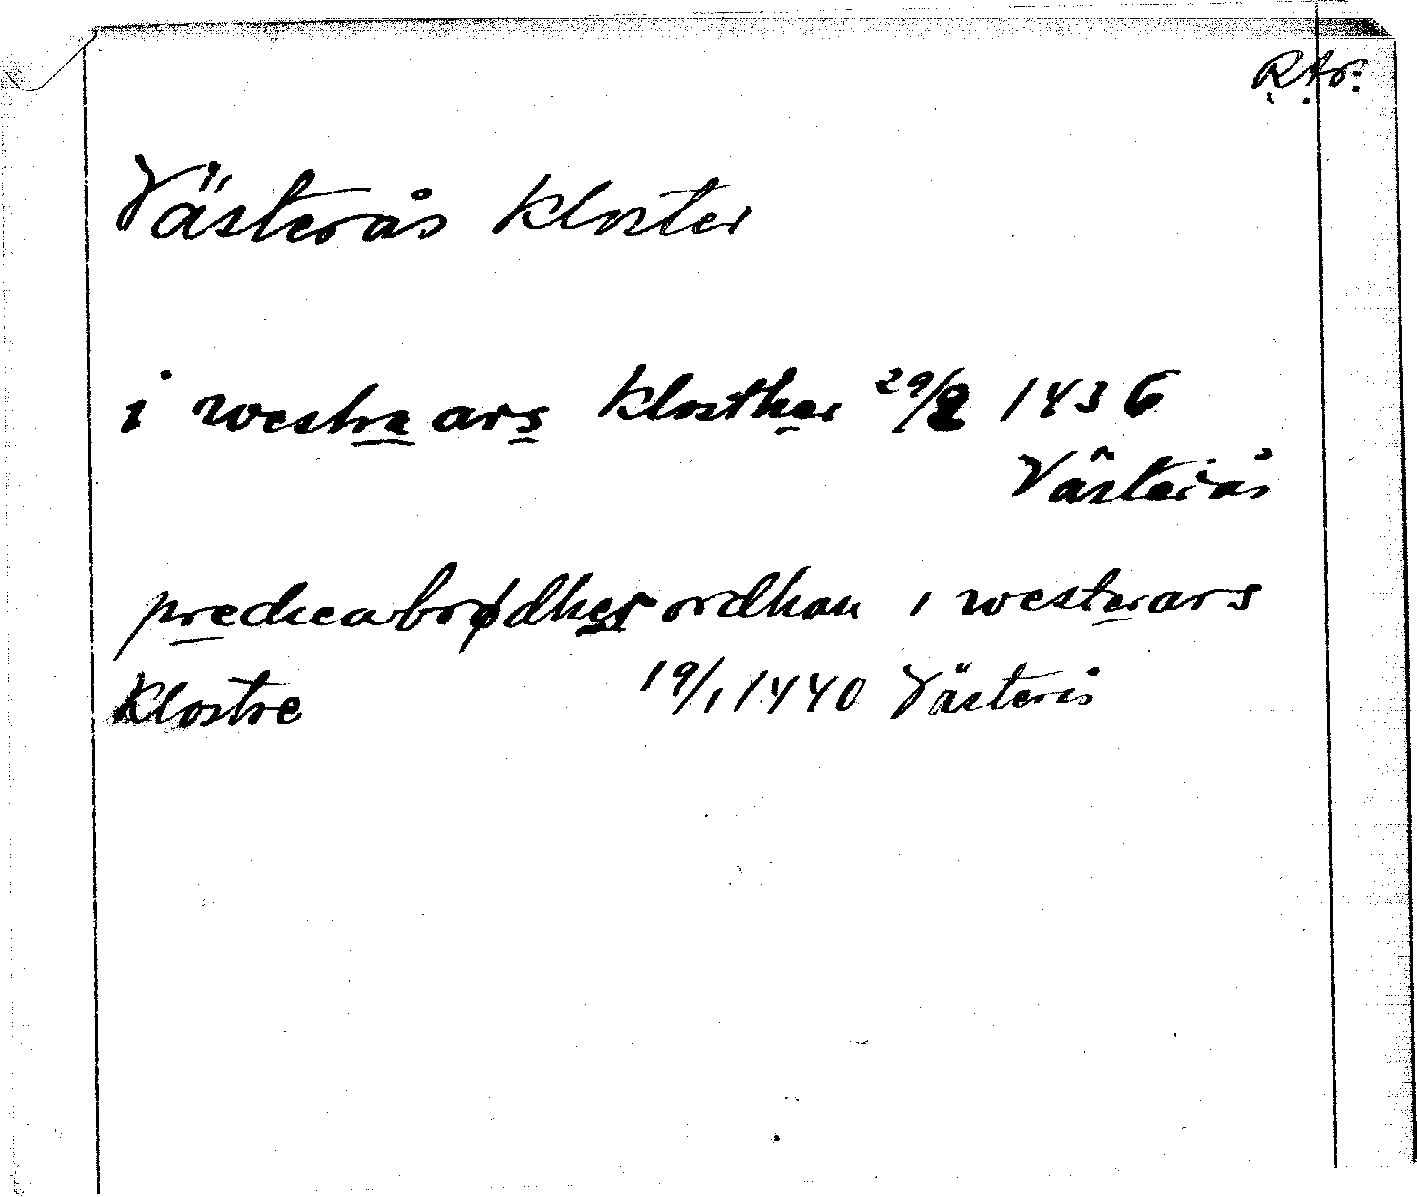 R.A.P.
Västerås kloster
i westra ars klosther 29/2 1436
Västerås
predicabrødher ordhan i westerars
klostre 19/1 1440 Västerås